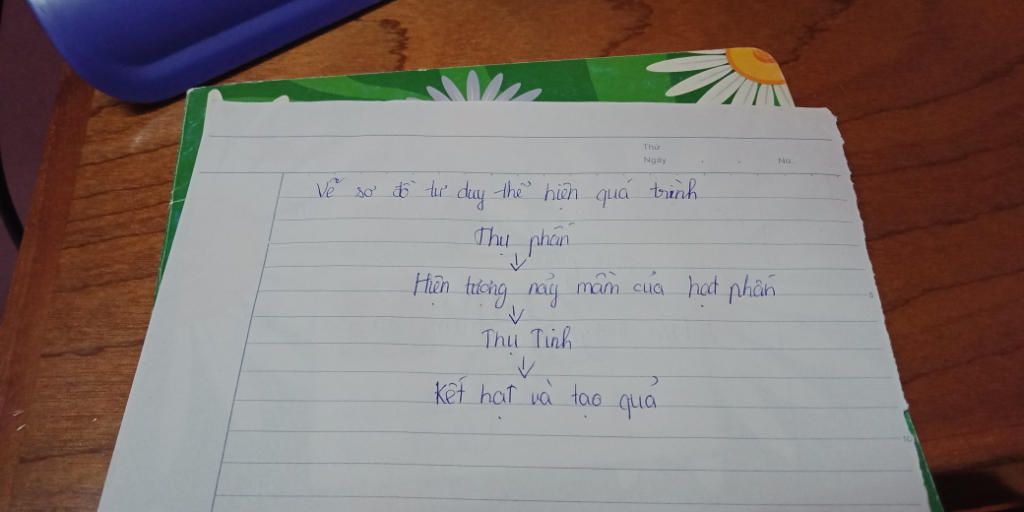 Thứ
Ngày . . No.
Vẽ sơ đồ tư duy thể hiện quá trình
Thụ phấn
↓
Hiện tượng nảy mầm của hạt phấn
↓
Thụ Tinh
↓
Kết hạt và tạo quả
5
10